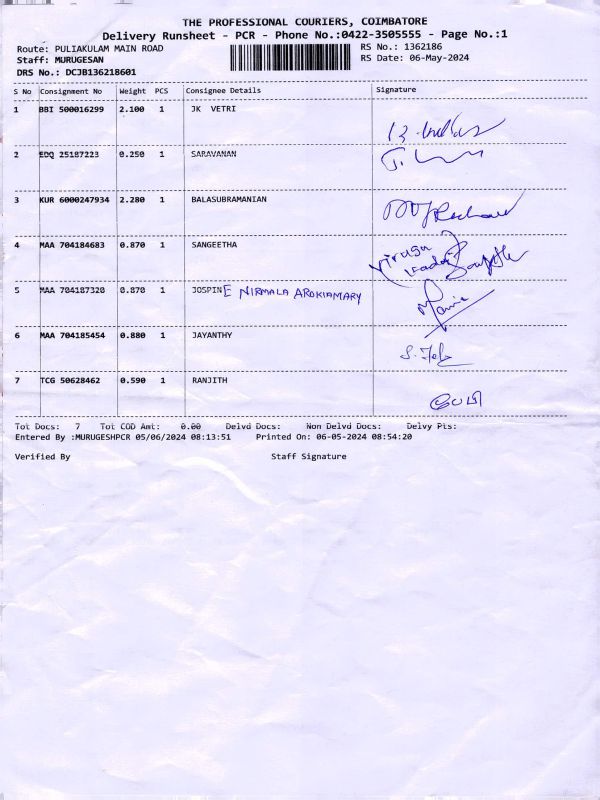 THE PROFESSIONAL COURIERS, COIMBATORE
Delivery Runsheet - PCR - Phone No.:0422-3505555 - Page No.:1
Route: PULIAKULAM MAIN ROAD RS No.: 1362186
Staff: MURUGESAN RS Date: 06-May-2024
DRS No.: DCJB136218601
S No Consignment No Weight PCS Consignee Details Signature
1 BBI 500016299 2.100 1 JK VETRI
2 EDQ 25187223 0.250 1 SARAVANAN
3 KUR 6000247934 2.280 1 BALASUBRAMANIAN
4 MAA 704184683 0.870 1 SANGEETHA
5 MAA 704187320 0.870 1 JOSPINE NIRMALA AROKIAMARY
6 MAA 704185454 0.880 1 JAYANTHY
7 TCG 50628462 0.590 1 RANJITH
Tot Docs: 7 Tot COD Amt: 0.00 Delvd Docs: Non Delvd Docs: Delvy Pts:
Entered By :MURUGESHPCR 05/06/2024 08:13:51 Printed On: 06-05-2024 08:54:20
Verified By Staff Signature